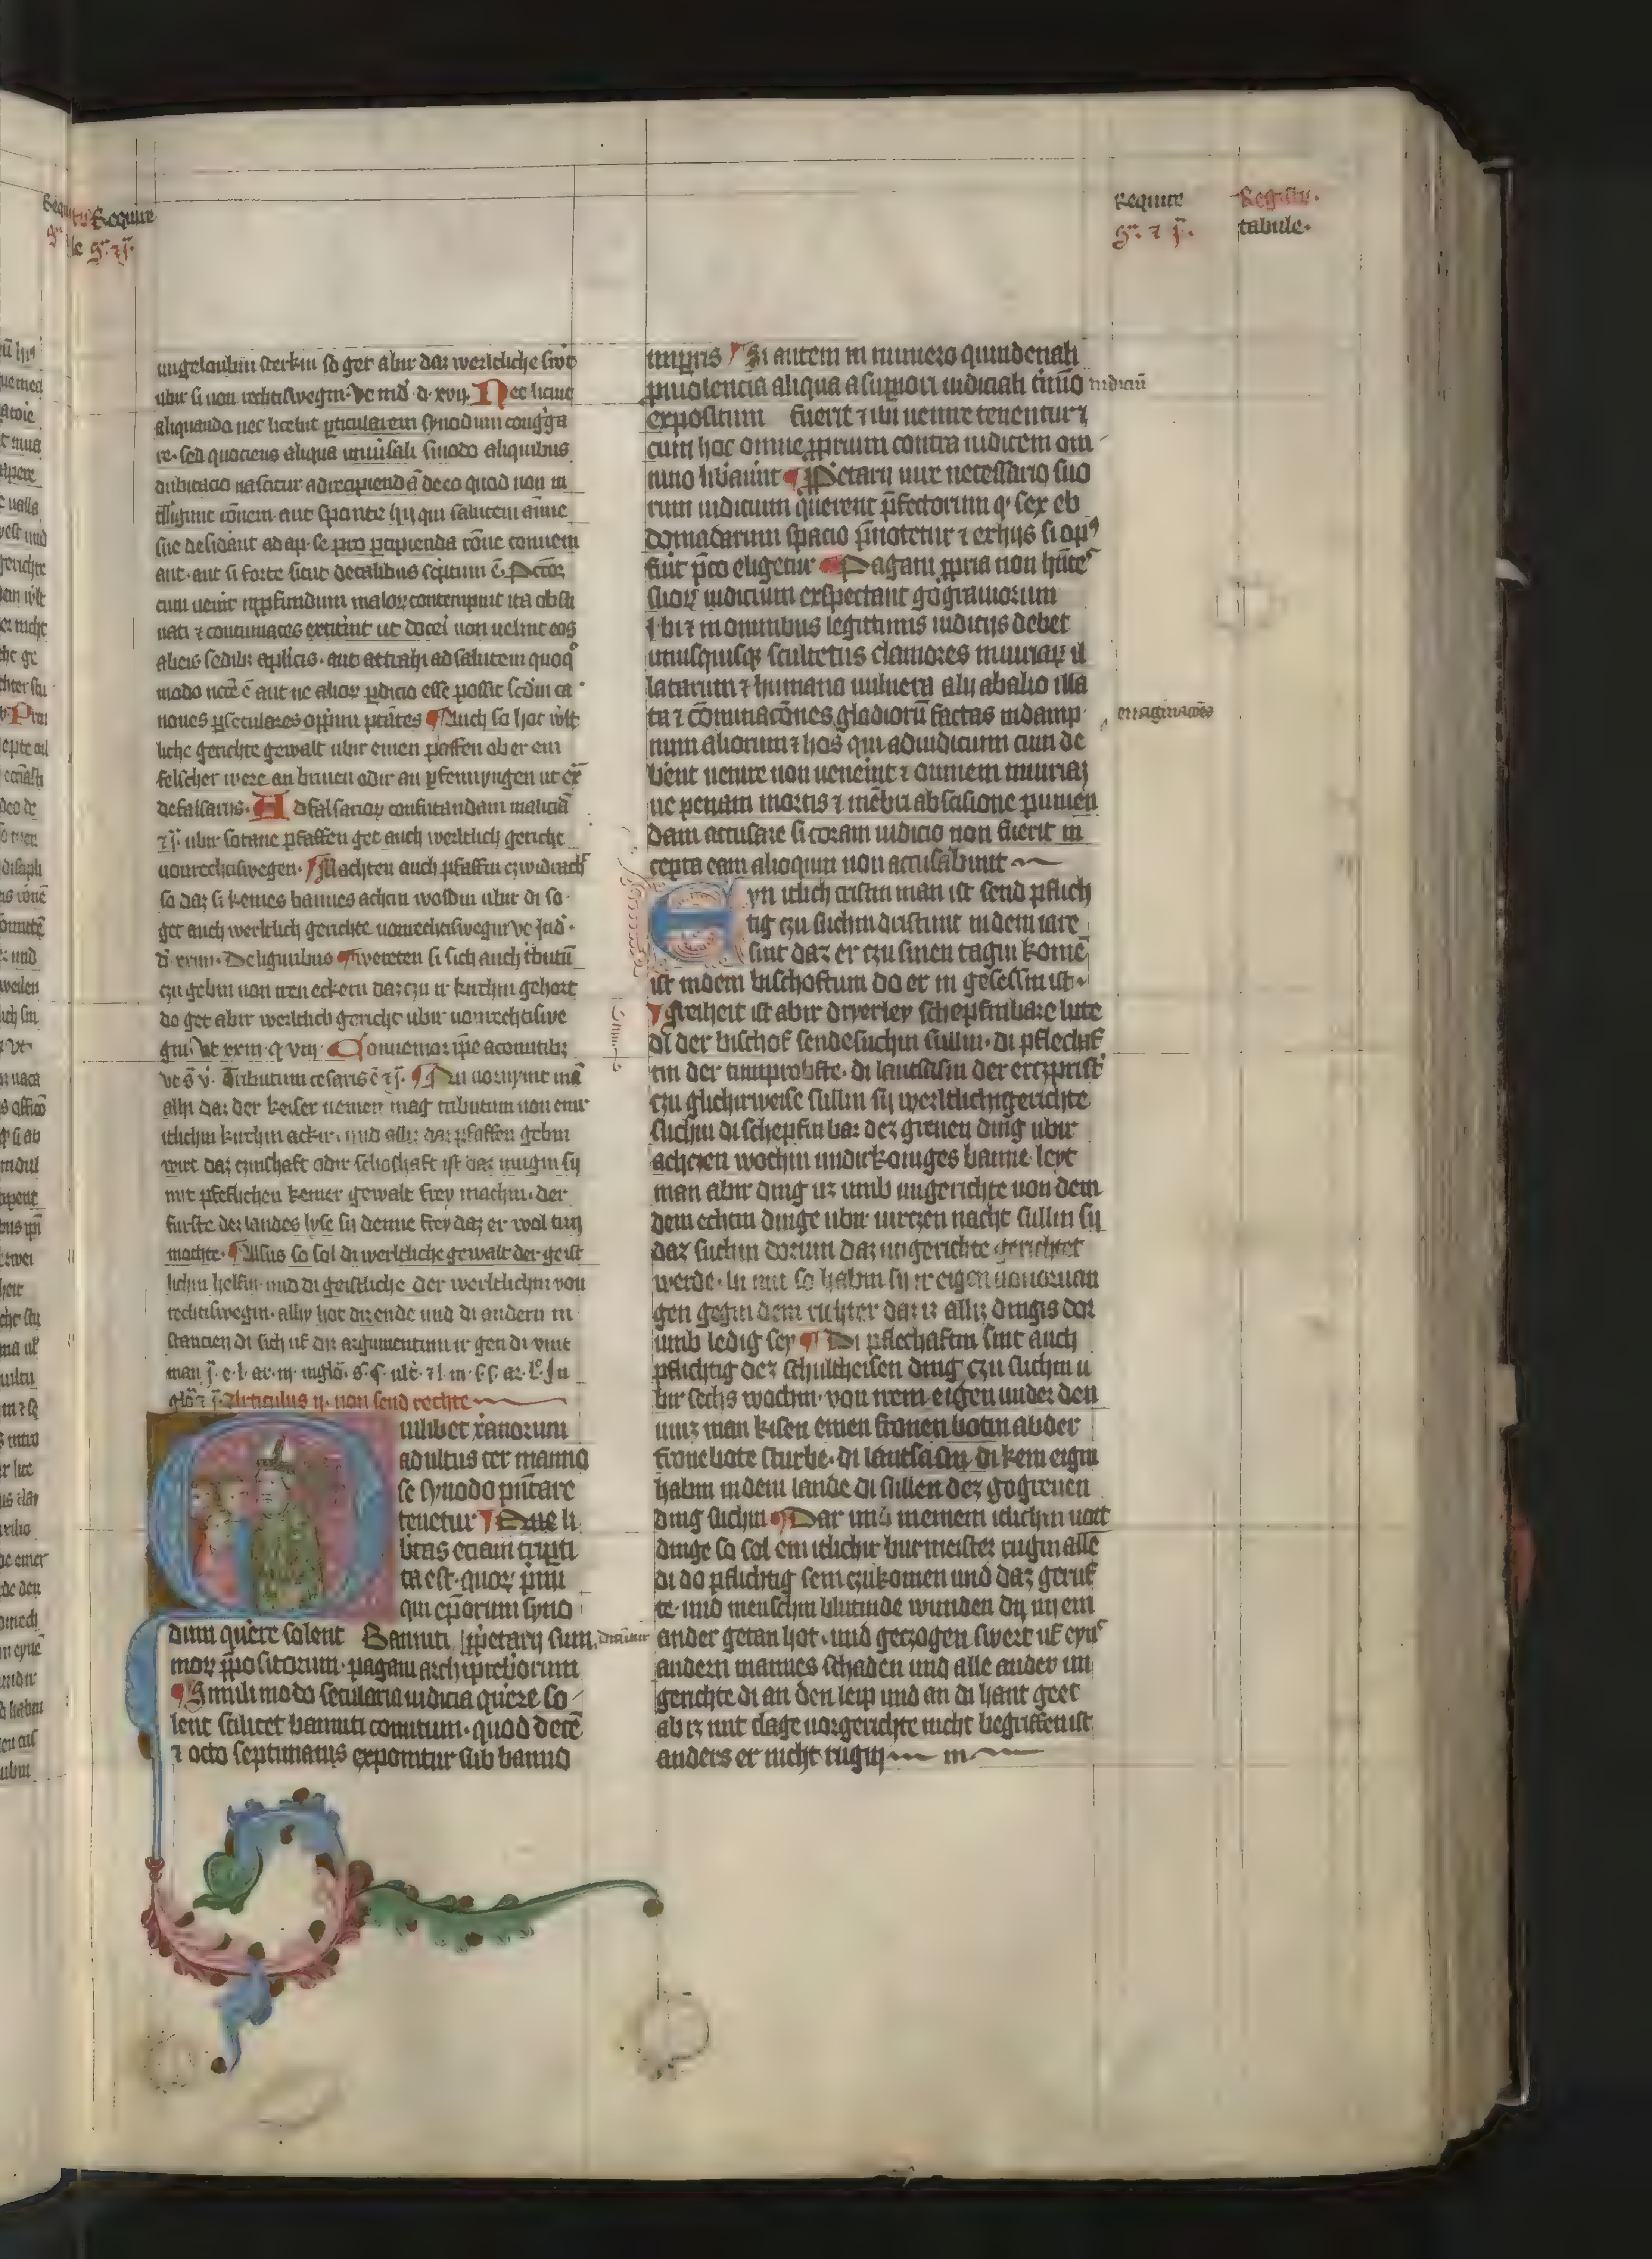 Require
s. ⁊ j̄.
Require
s. ⁊ j̄.
Registru.
tabule.
ungeloubin sterkin so get abir daz werltliche swͦt
ubir si von rechtiswegin. Vt in d. d. xvij. Nec licuit
aliquando nec licebit ꝑticularem synodum cong̃ga
re. sed quociens aliqua uniũsali sinodo aliquibus
dubitacio nascitur ad recipiendã de eo quod non in
telligunt rõnem. aut sponte hij qui salutem anime
sue desid̃ant ad ap. se. pro ꝑcipienda rõne conueni
ant. aut si forte sicut decalibus sc̃ptum ẽ. Pctõr
cum uenit in ꝓfundum maloꝝ contempnit ita obsti
nati ⁊ contumaces extitint ut doceri non uelint eos
abicis sedibꝫ aplicis. aut attrahi ad salutem quoqͦ
modo ncc̃e ẽ aut ne alioꝝ ꝑdicio esse possit sed̃m ca
nones ꝑ seculares opp̃mi ptãtes ¶ Auch so hot wlt
liche gerichte gewalt ubir einen pfaffen ob er ein
felscher were an briuen odir an pfennyngen ut ex̃
de falsariis. Ad falsarioꝝ confutandam maliciã
⁊ j̄. ubir sotane pfaffen get auch werltlich gericht
uonrechtiswegen. ¶ Machten auch pfaffin czwidracht
so daz si keines bannes achtin woldin ubir di so
get auch werltlich gerichte uonrechtiswegin vt Jud.
d. xxiiii. De liguribus ¶ wereten si sich auch tͥbutũ
czu gebin uon iren eckern daz czu ir kirchin gehort
do get abir werltlich gericht ubir uonrechtiswe
gin. Vt xxiij. q. viij. Conuenior ip̃e a comitibꝫ
vt s̃. v. Tributum cesaris ẽ ⁊ j̄. ¶ Nu uornymt mã
allhi daz der keiser nemen mag tributum uon eime
itlichin kirchin ackir. und allz daz pfaffen gebin
wirt daz czinschaft odir schoschaft ist daz mugin sij
mit pfeflichen keiner gewalt frey machin. der
furste dez landes lyse sij denne frey daz er wol tun
mochte. ¶ Alsus so sol di werltliche gewalt der geist
lichin helfin. und di geistliche der werltlichin von
rechtiswegin. alhy hot diz ende und di andern in
stancien di sich uf diz argumentum ir gen di vint
man j̄. e. l. ar. iij. in glõ. s. q̃. ult̃. ⁊ l. iii. s̃. s̃. ar. l. Jn
glõ ⁊ j̄. Articulus ij. uon send rechte
Quilibet xanorum
adultus ter in anno
se synodo p̃ntare
tenetur ¶ Que li
bertas eciam triꝑti
ta est. quoꝝ primi
qui ep̃orum syno
dum querere solent Banniti ꝓpetarij sum
moꝝ ꝓpositorum. pagani archipr̃biorum
¶ Simili modo secularia iudicia querere so
lent scilicet banniti comitum. quod decẽ
⁊ octo septimanis exponitur sub banno
imꝑris ¶ Si autem in numero quindenali
ꝓ uiolencia aliqua a suꝑiori iudiciali t̃mĩo
iudiciũ
expositum fuerit ⁊ ibi uenire tenentur ⁊
cum hoc omne ꝓprium contra iudicem om
nino lib̃auint ¶ ꝓpetarij iure necessario suo
rum iudicium querent p̃fectorum q. sex eb
domadarum spacio p̃notetur ⁊ ex hijs si opꝰ
fuit p̃co eligetur ¶ Pagani ꝓpria non hñtes
suoꝝ iudicium exspectant gograuiorum
Ibi ⁊ in omnibus legittimis iudicijs debet
unusquisqꝫ scultetus clamores iniuriaꝝ il
latarum ⁊ humana uulnera alij ab alio illa
ta ⁊ cõminacõnes gladiorũ factas in damp
num aliorum ⁊ hos qui ad iudicium cum de
bent uenire non uenerint ⁊ omnem iniuriaʒ
ue penam mortis ⁊ mẽbri abscisione punien
dam accusare si coram iudicio non fuerit in
cepta eam alioquin non accusabunt
Eyn itlich cristin man ist send pflich
tig czu suchin dristunt in dem iare
sint daz er czu sinen tagin komẽ
ist in dem bischoftum do er in gesessin ist.
¶ Freiheit ist abir driuerley schepfinbare lute
di der bischof sende suchin sullin. di pflechaf
tin der tumprobste. di lantsasin der erczprist
czu glichirweise sullin sij werltlichingerichte
suchin di schepfinbar dez greuen ding ubir
achczen wochin undir koniges banne. leyt
man abir ding uz umb ungerichte uon dem
dem echtin dinge ubir uirczen nacht sullin sij
daz suchin dorum daz ungerichte gerichtet
werde. hi mit so habin sij ir eigen uonoruan
gen gegin dem richter daz iz allz dingis dor
umb ledig sey ¶ Di pflechaftin sint auch
pflichtig dez schultheisen ding czu suchin u
bir sechs wochin. von irem eigen under den
muz man kisen einen fronen botin ab der
fronebote sturbe. di lantsasin di kein eigin
habin in dem lande di sullen dez gogreuen
ding suchin ¶ Dar und in einem itlichin uoit
dinge so sol ein itlichir burmeister rugin alle
di do pflichtig sein czukomen und daz geruf
te. und menschin blutinde wunden di im ein
ander getan hot. und geczogen swert uf eyns
andern mannes schaden und alle ander un
gerichte di an den leip und an di hant geet
ab iz mit clage uor gerichte nicht begriffen ist
anders er nicht rugin